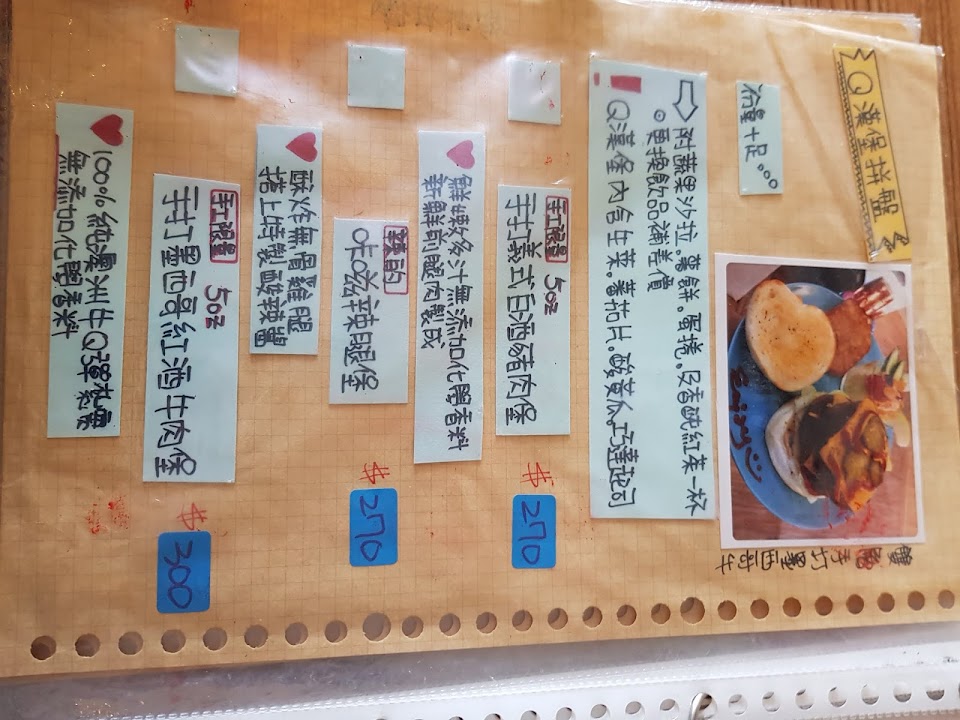 Q漢堡拼盤
份量十足。。。
附蔬果沙拉。薯餅。蛋捲。及香醇紅茶一杯
。更換飲品補差價
! Q漢堡內含生菜。蕃茄片。酸黃瓜。巧達起司
Enjoy
雙
手打墨西哥牛
手工限量 5oz
手打美式日滷豬肉堡 $270
鮮嫩多汁無添加化學香料
新鮮前腿肉製成
辣的
卡滋辣腿堡 $270
酥炸無骨雞腿
搭上特製酸辣醬
手工限量 5oz
手打墨西哥紅滷牛肉堡 $300
100%純澳洲牛Q彈紮實
無添加化學香料